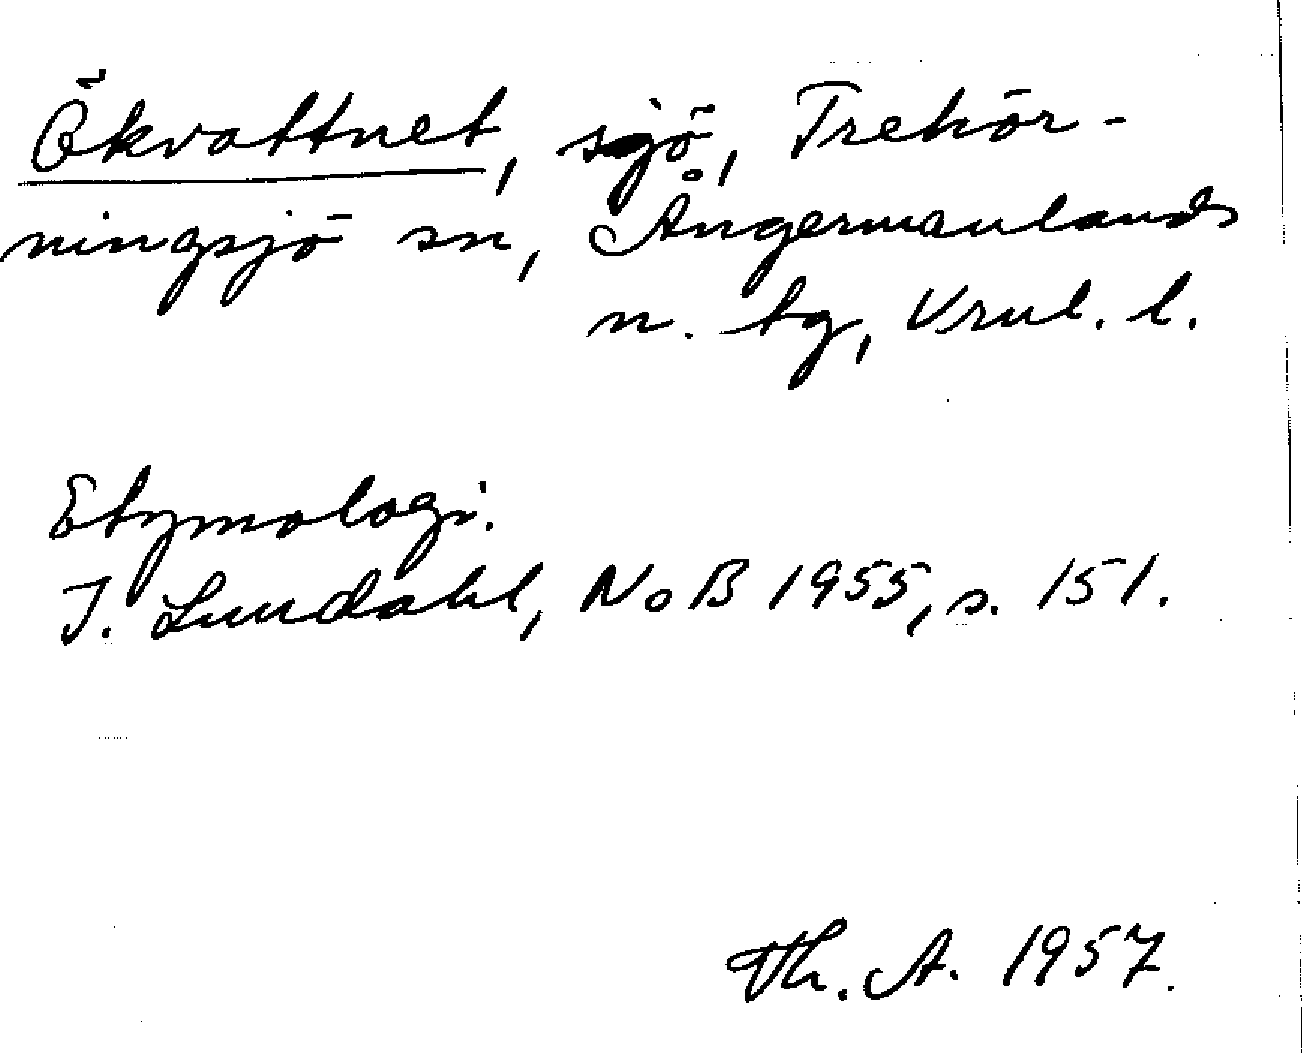 Ökvattnet, sjö, Trehör-
ningsjö sn, Ångermanlands
n. tg, Vrnl. l.
Etymologi.
I. Lundahl, NoB 1955, s. 151.
Th. A. 1957.